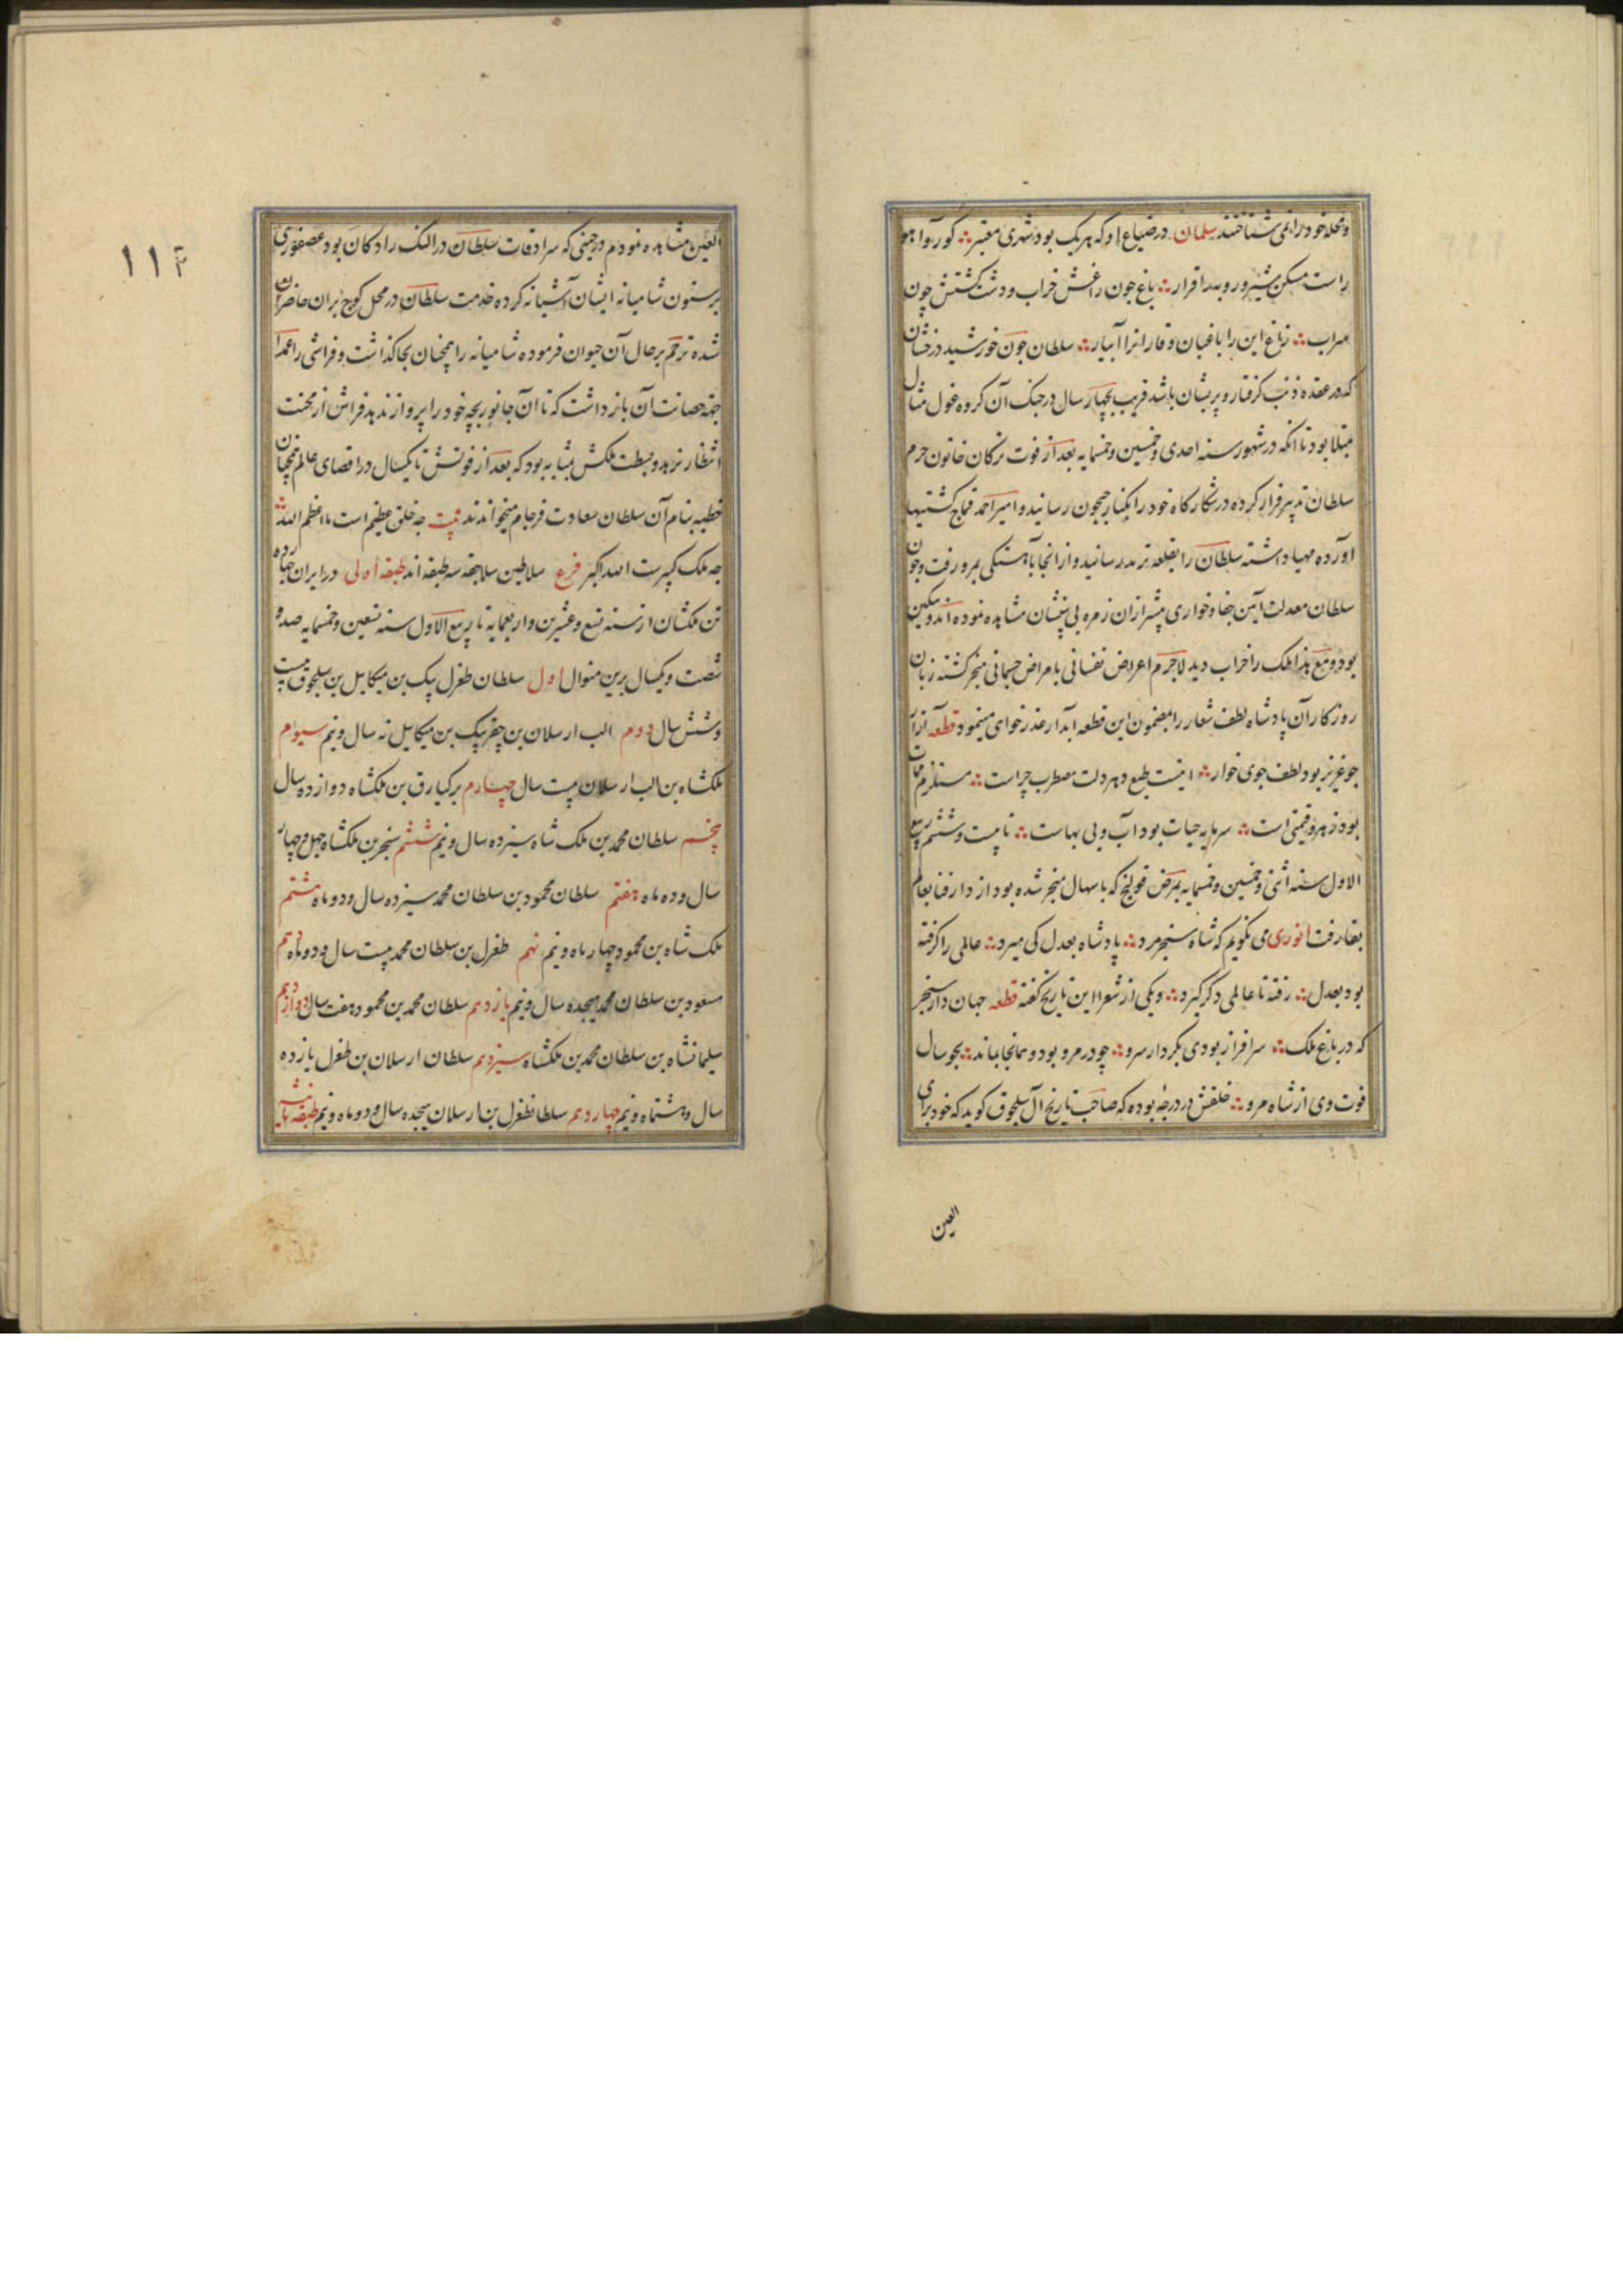 و محله خود را نمی شناختند سلمان در ضیاع او که هر یک بود شهری معتبر ∴ کور و آهو
راست مسکن شیر و روبه را قرار ∴ باغ چون راغش خراب و دشت کشتش چون
سراب ∴ زاغ این را باغبان و قار انرا آبیار ∴ سلطان چون خورشید درخشان
که در عقده ذنب کرفتار و پریشان باشد قریب بچهار سال در جنک آن کروه غول مثال
مبتلا بود تا انکه در شهور سنه احدی و خمسین و خمسمایه بعد از فوت ترکان خاتون حرم
سلطان تدبیر فرار کرده در شکارکاه خود را بکنار جیحون رسانید و امیر احمد قماج کشتیها
اورده مهیا داشته سلطان را بقلعه ترمد رسانید و از انجا بآهستکی بمرو رفت و چون
سلطان معدلت آیین جفا و خواری بیشتر ازان زمره بی نشان مشاهده نموده اندوهکین
بود و مع هذا ملک را خراب دید لاجرم اعراض نفسانی بامراض جسمانی منجر کشته زبان
روزکار آن پادشاه لطف شعار را بمضمون این قطعه آبدار عذر خوای مینمود قطعه آنرا
جو عزیز بود لطف جوی خوار ∴ اینست طبع دهر دلت مضطرب چراست ∴ مستلزم ممات
بود زهر و قیمتی است ∴ سرمایه حیات بود آب و بی بهاست ∴ تا بیست و ششم ربیع
الاول سنه اثنی و خمسین و خمسمایه بمرض قولنج که باسهال منجر شده بود از دار فنا بعالم
بقا رفت انوری می نکویم که شاه سنجر مرد ∴ پادشاه بعدل کی میرد ∴ عالمی را کرفته
بود بعدل ∴ رفته تا عالمی دکر کیرد ∴ و یکی از شعرا این تاریخ کفته قطعه جهان دار سنجر
که در باغ ملک ∴ سرافراز بودی بکردار سرو ∴ چو در مرو بود و همانجا بماند ∴ بجو سال
فوت وی از شاه مرو ∴ خلقش در درجه بوده که صاحب تاریخ آل سلجوق کوید که خود برای
العین
۱۱۲
العین مشاهده نمودم در حینی که سرادقات سلطان در النک رادکان بود عصفوری
بر ستون شامیانه ایشان آشیانه کرده خدمت سلطان در محل کوچ بران حاضر
شده ترحم بر حال آن حیوان فرموده شامیانه را همچنان بجا کذاشت و فراشی را عمدا
جهة حصانت آن بازداشت که تا آن جانور بچه خود را پرواز ندهد فراش از محنت
انتظار نرهد و بسطت ملکش بمثابه بود که بعد از فوتش تا یکسال در اقصای عالم همچنان
خطبه بنام آن سلطان سعادت فرجام میخواندند بیت چه خلق عظیم است ما اعظم الله ∴
چه ملک کبیرت الله اکبر فرع سلاطین سلاجقه سه طبقه اند طبقه اولی در ایران چهارده
تن ملکشان از سنه تسع و عشرین و اربعمایه تا ربیع الاول سنه تسعین و خمسمایه صد و
شصت و یکسال برین منوال اول سلطان طغرل بیک بن میکاییل بن سلجوق بیست
و شش سال دوم الب ارسلان بن چغر بیک بن میکاییل نه سال و نیم سیوم
ملکشاه بن الب ارسلان بیست سال چهارم برکیارق بن ملکشاه دوازده سال
پنجم سلطان محمد بن ملک شاه سیزده سال و نیم ششم سنجر بن ملکشاه چهل و چهار
سال و ده ماه هفتم سلطان محمود بن سلطان محمد سیزده سال و دو ماه هشتم
ملک شاه بن محمود چهار ماه و نیم نهم طغرل بن سلطان محمد بیست سال و دو ماه دهم
مسعود بن سلطان محمد هیجده سال و نیم یازدهم سلطان محمد بن محمود هفت سال دوازدهم
سلیمانشاه بن سلطان محمد بن ملکشاه سیزدهم سلطان ارسلان بن طغرل یازده
سال و هشتماه و نیم چهاردهم سلطان طغرل بن ارسلان هیجده سال و دو ماه و نیم طبقه ثانیه